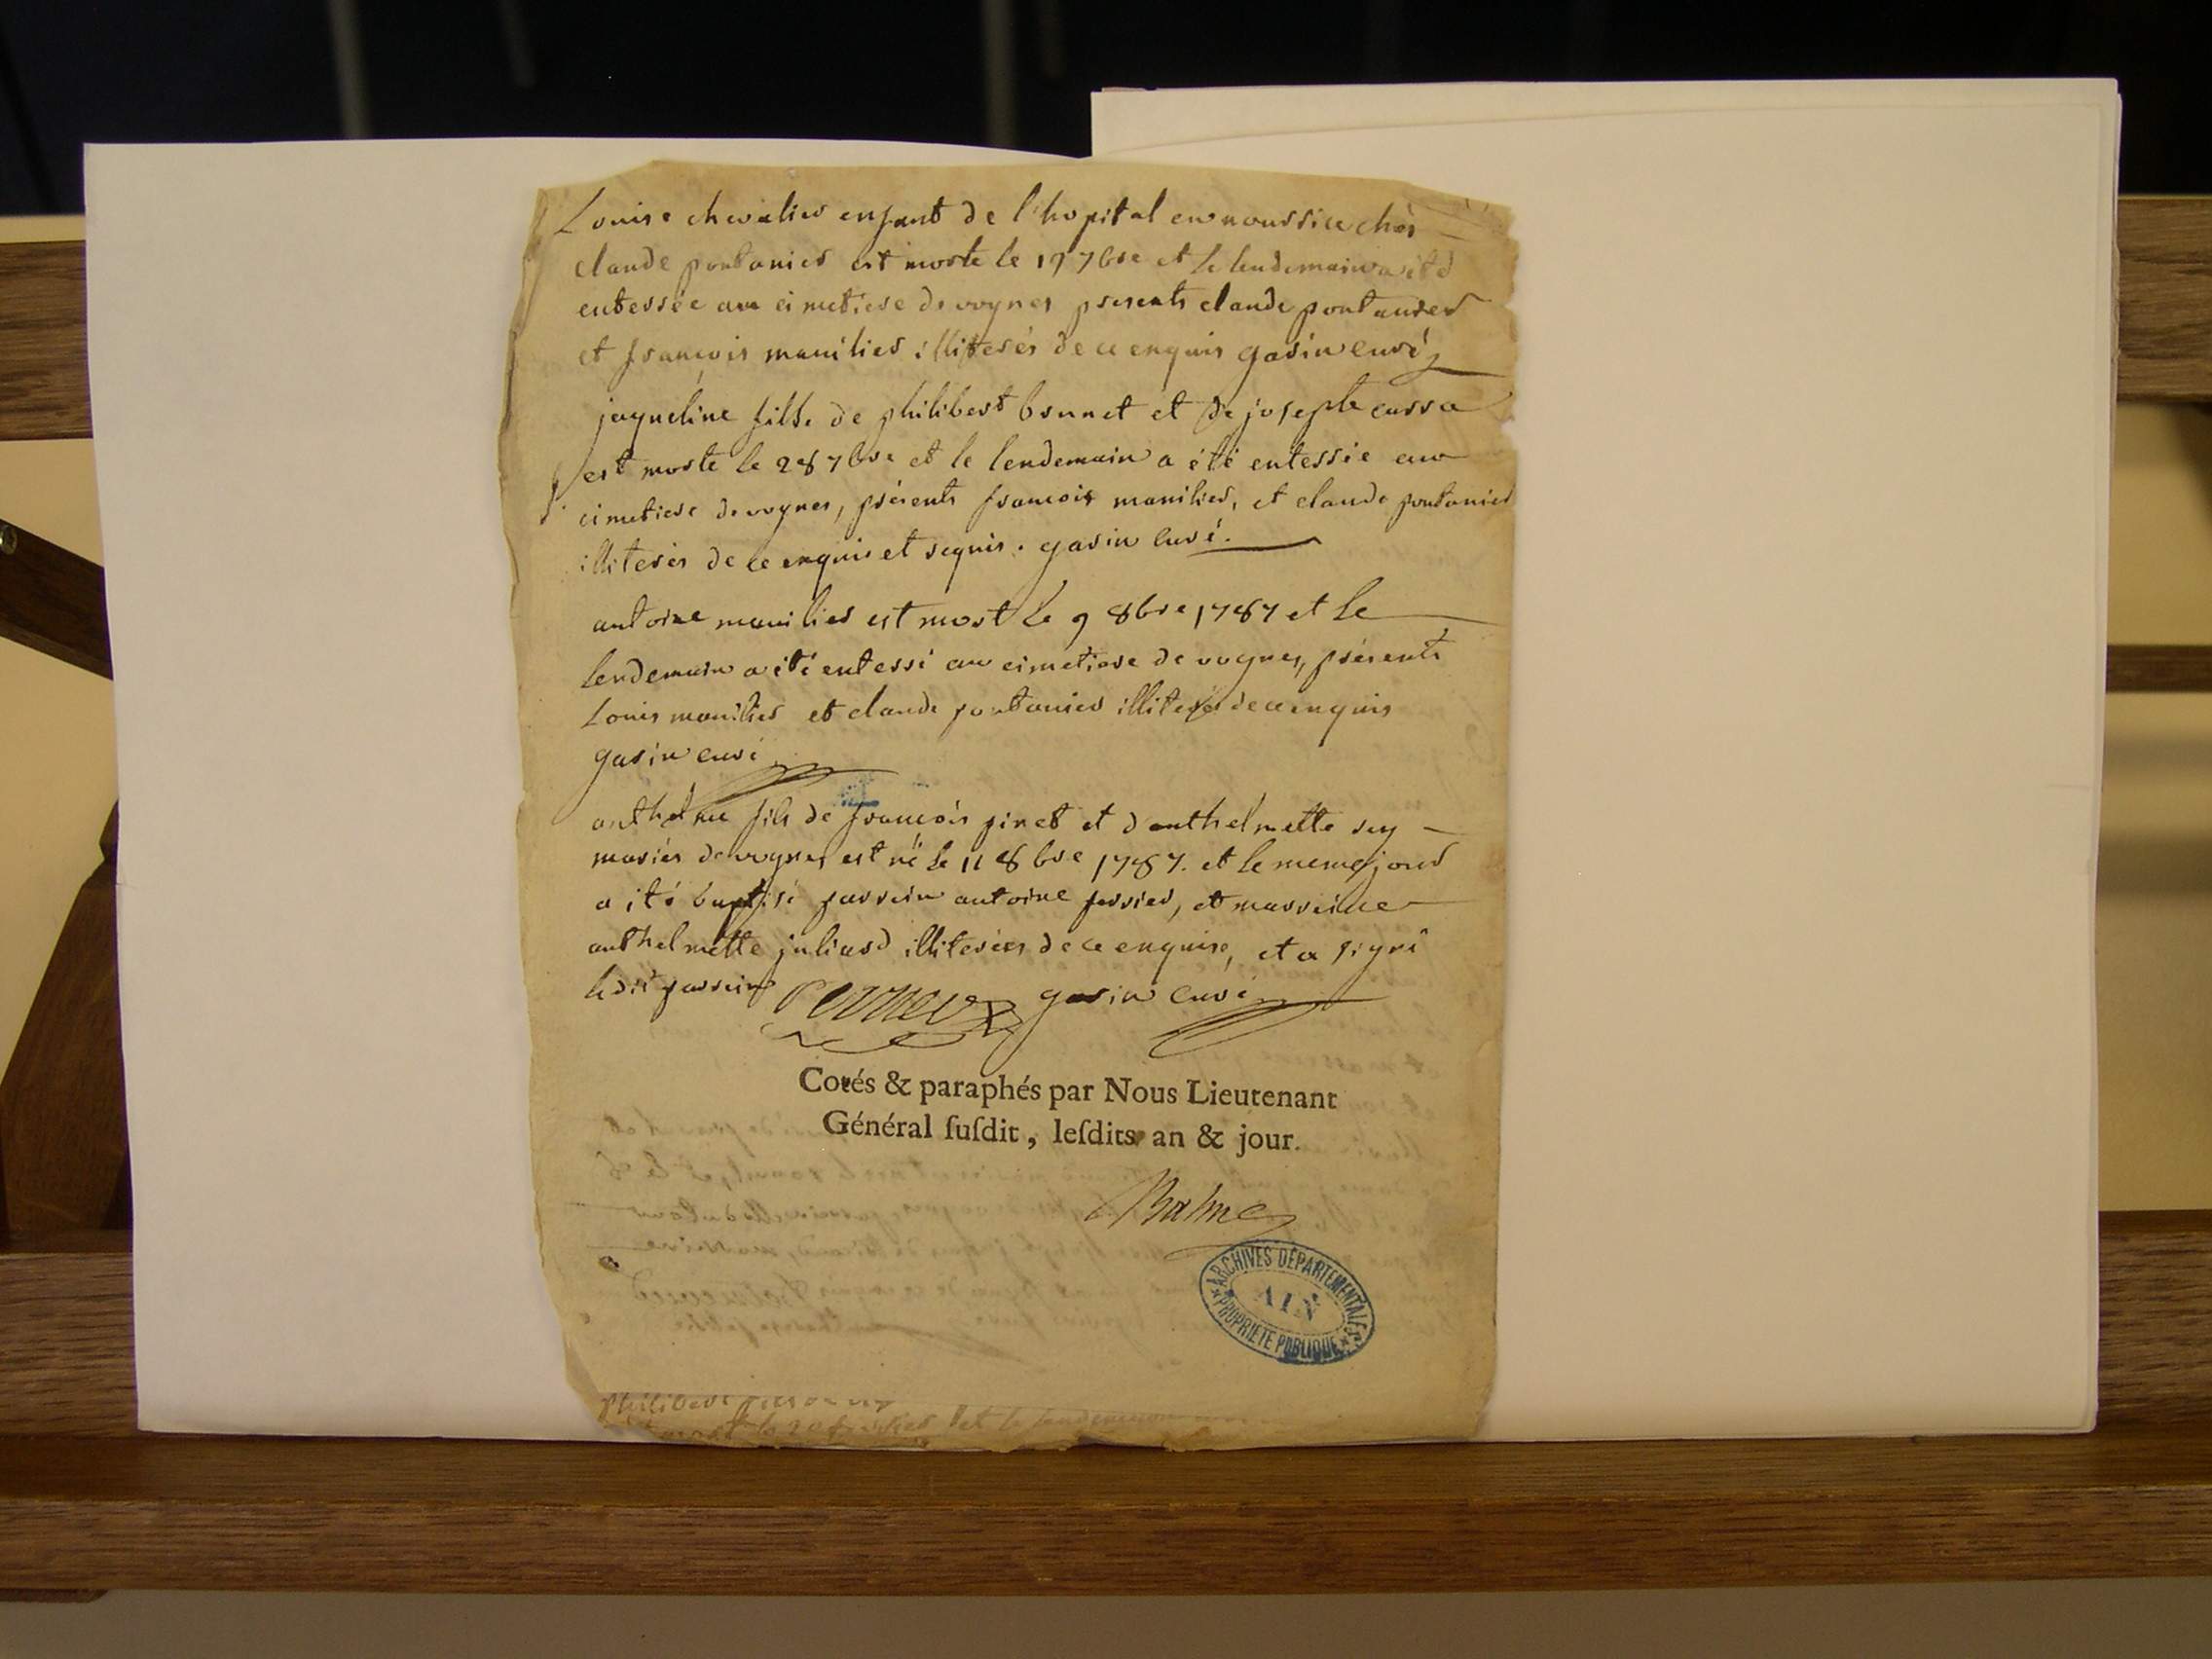 Louise chevalier enfant de l'hopital en nourrice chés
claude pontanier est morte le 17 7bre et le lendemain a été
enterrée au cimetiere de vognes presents claude pontanier
et françois manilier illiterés de ce enquis garin curé
jaqueline fille de philibert brunet et de josephte carra
est morte le 28 7bre et le lendemain a été enterrée au
cimetiere de vognes, présents francois manilier, et claude pontanier
illiterés de ce enquis et requis. garin curé.
antoine manilier est mort le 9 8bre 1787 et le
lendemain a été enterré au cimetiere de vognes, présents
Louis manilier et claude pontanier illiterés de ce enquis
garin curé
anthelme fils de françois pinet et d'anthelmette rey
mariés de vognes est né le 11 8bre 1787. et le meme jour
a été baptisé parrein antoine perrier, et marreine
anthelmette juliard illiterées de ce enquise, et a signé
ledit parrein garin curé
Cotés & paraphés par Nous Lieutenant
Général ſuſdit, leſdits an & jour.
Balme
ARCHIVES DÉPARTEMENTALES
AIN
PROPRIÉTÉ PUBLIQUE
philibert
le 20 et le lendemain